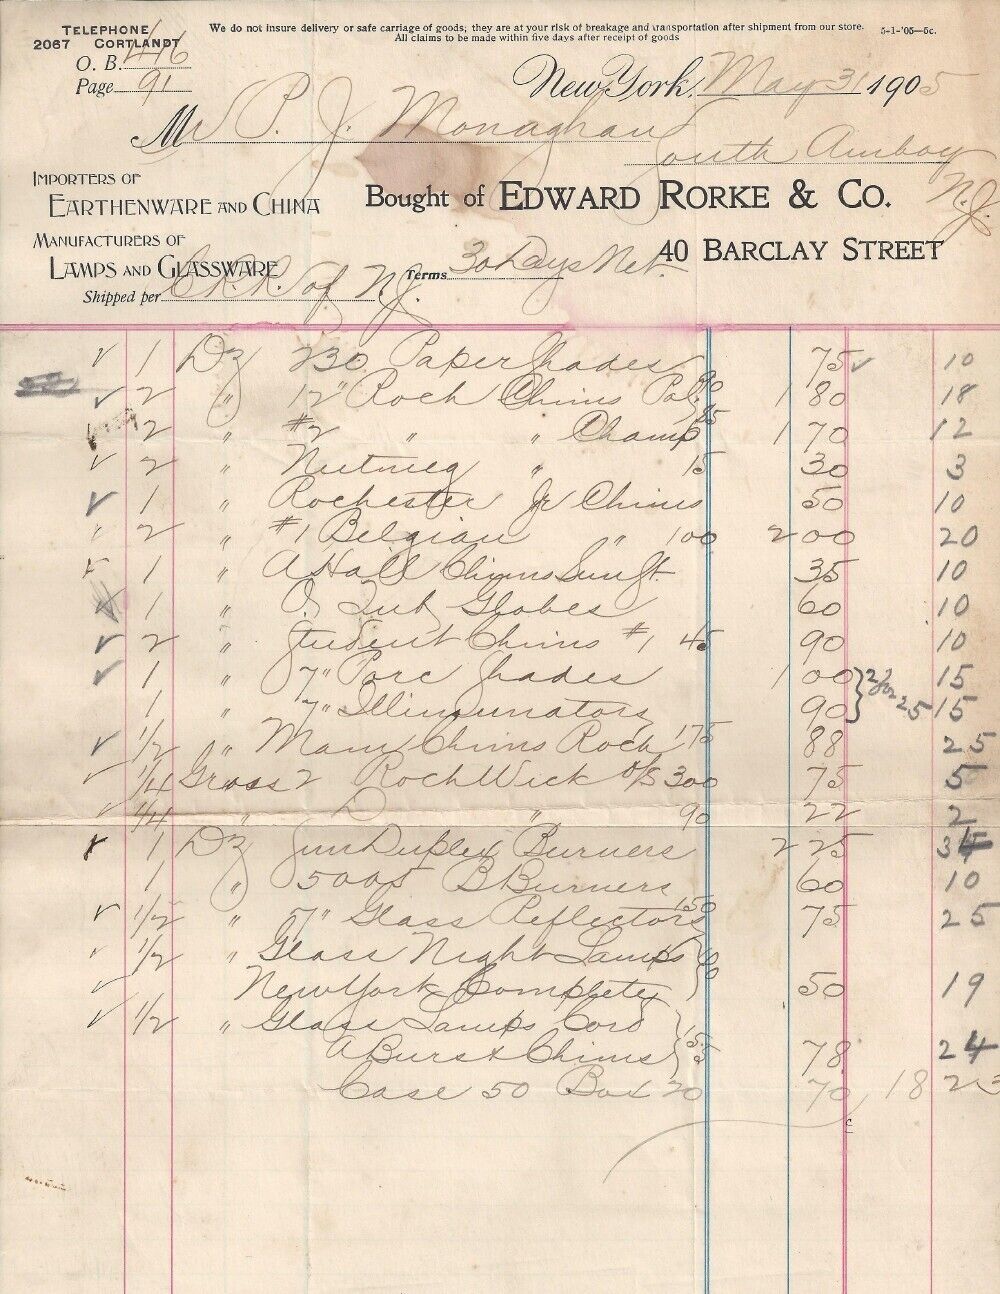 TELEPHONE
2067 CORTLANDT
We do not insure delivery or safe carriage of goods; they are at your risk of breakage and transportation after shipment from our store.
All claims to be made within five days after receipt of goods
5-1-'05—5c.
O. B. 446
Page 91
New York, May 31 1905
Mr P. J. Monaghan
South Amboy
N.J.
IMPORTERS OF
EARTHENWARE AND CHINA
Bought of EDWARD RORKE & CO.
MANUFACTURERS OF
LAMPS AND GLASSWARE
40 BARCLAY STREET
Shipped per C.R.R. of N.J.
Terms 30 Days Net.
1 Dz 230 Paper Shades 75 10
2 " 12" Roch Chims Pol. 90 1 80 18
2 " #2 " " Champ 85 1 70 12
2 " Nutmeg " 15 30 3
1 " Rochester Jr Chims 50 10
2 " #1 Belgian " 100 2 00 20
1 " A Hall Chims 35 10
1 " Globes 60 10
2 " Student Chims #1 45 90 10
1 " 7" Porc Shades 1 00 15
1 " 7" Illimunators 90 } 2 for 25 15
1/2 " Mam Chims Roch 175 88 25
1/4 Gross 2 Roch Wick 300 75 5
1/4 " D " 90 22 2
1 Dz Duplex Burners 2 25 34
1 " 5005 B Burners 60 10
1/2 " 5" Glass Reflectors 150 75 25
1/2 " Glass Night Lamps
New York Complete 50 19
1/2 " Glass Lamps Cord
A Burs & Chims 155 78 24
Case 50 Box 20 70 18 23